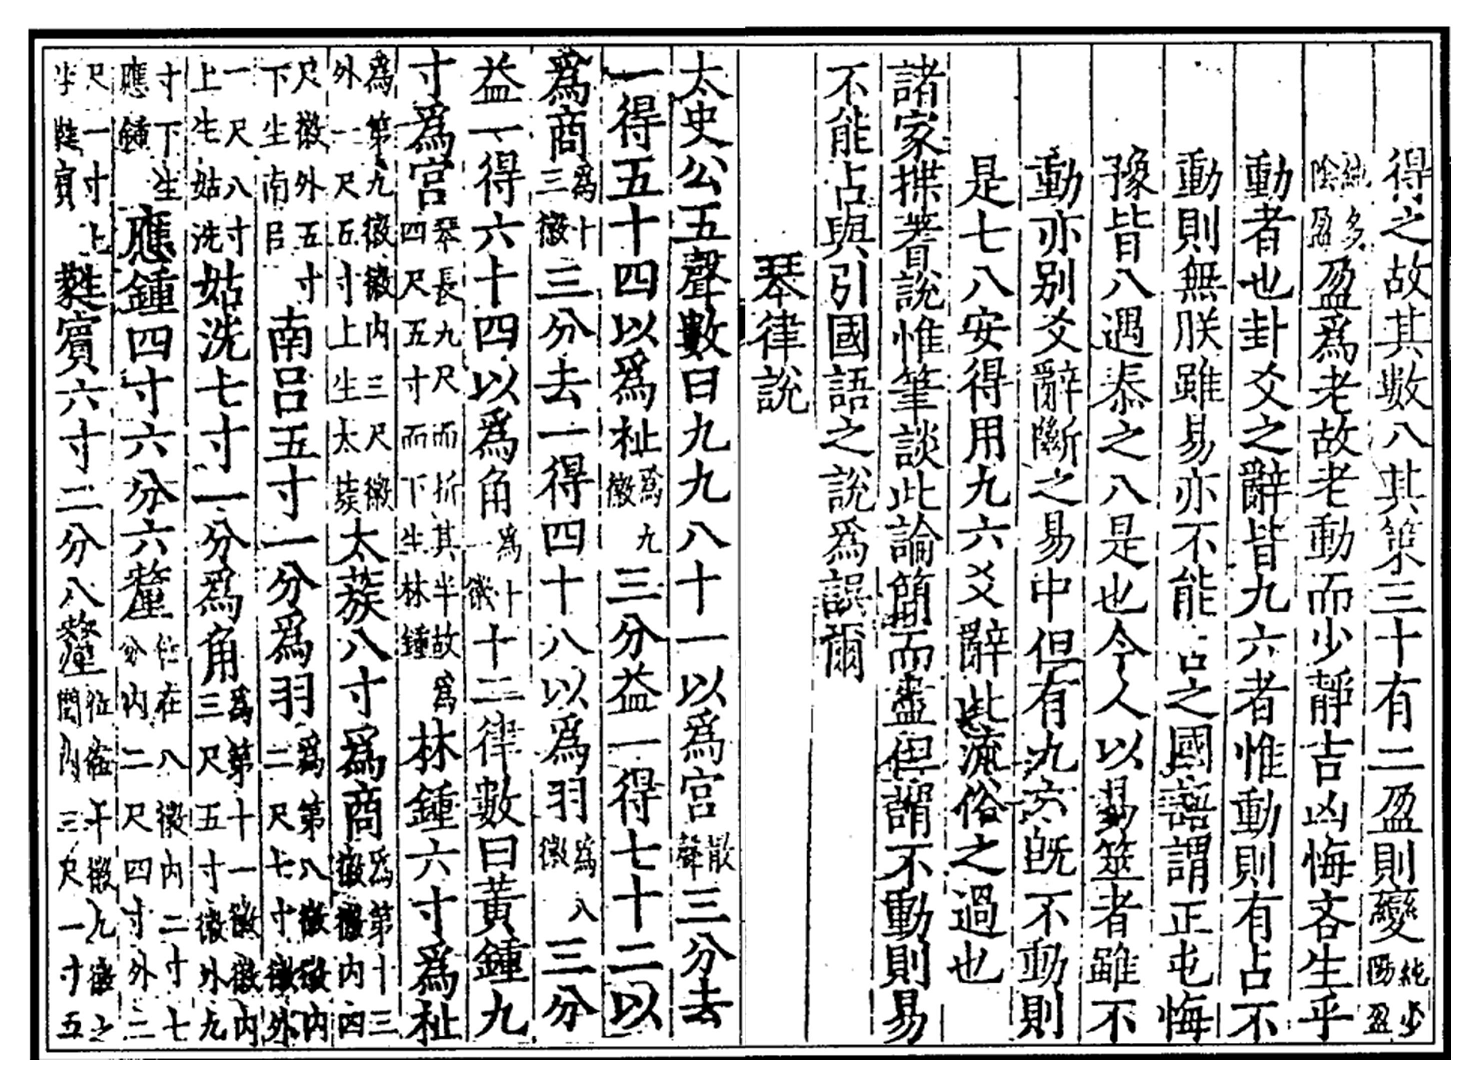 得之故其數八其策三十有二盈則變純少陽盈
純多陰盈盈爲老故老動而少靜吉凶悔吝生乎
動者也卦爻之辭皆九六者惟動則有占不
動則無朕雖易亦不能占之國語謂正屯悔
豫皆八遇泰之八是也今人以易筮者雖不
動亦別爻辭斷之易中但有九六旣不動則
是七八安得用九六爻辭此流俗之過也
諸家揲蓍說惟筆談此論簡而盡但謂不動則易
不能占與引國語之說爲誤爾
琴律說
太史公五聲數曰九九八十一以爲宮散聲三分去
一得五十四以爲祉爲九徽三分益一得七十二以
爲商爲十三徽三分去一得四十八以爲羽爲八徽三分
益一得六十四以爲角爲十一徽十二律數曰黃鍾九
寸爲宮琴長九尺而折其半故爲四尺五寸而下生林鍾林鍾六寸爲祉
爲第九徽徽內三尺徽外一尺五寸上生太蔟太蔟八寸爲商爲第十三徽徽內四
尺徽外五寸下生南呂南呂五寸一分爲羽爲第八徽徽內二尺七寸徽外
一尺八寸上生姑洗姑洗七寸一分爲角爲第十一徽徽內三尺五寸徽外九
寸下生應鍾應鍾四寸六分六釐位在八徽內二寸七分內二尺四寸外二
尺一寸上生蕤賓蕤賓六寸二分八釐位在午徽九徽之間內三尺一寸五